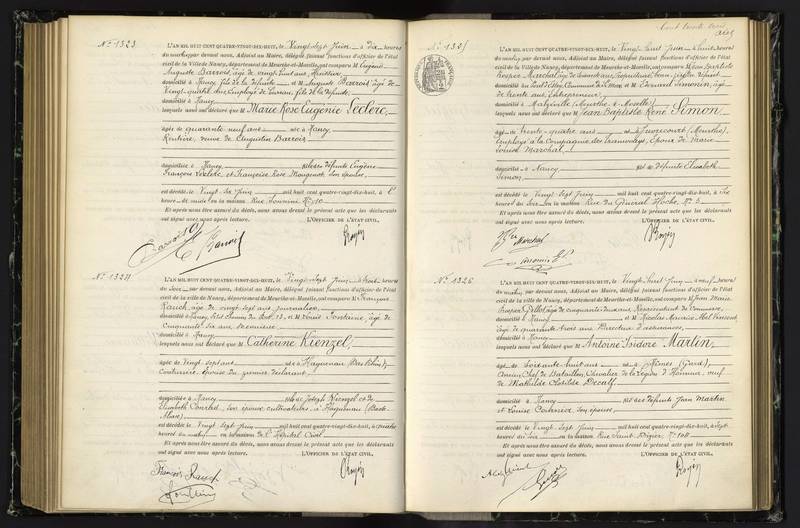 N° 1323.
L'AN MIL HUIT CENT QUATRE-VINGT-DIX-HUIT, le Vingt-sept Juin à Dix heures
du matin par devant nous, Adjoint au Maire, délégué faisant fonctions d'officier de l'état
civil de la Ville de Nancy, département de Meurthe-et-Moselle, ont comparu M Eugène
Auguste Barrois, âgé de vingt huit ans,
domicilié à Nancy, fils de la défunte et M Auguste Barrois, âgé de
Vingt quatre ans, Employé de bureau, fils de la défunte
domicilié à Nancy
lesquels nous ont déclaré que M Marie Rose Eugénie Leclerc,
âgée de quarante neuf ans née à Nancy
Rentière, veuve de Augustin Barrois
domiciliée à Nancy fille des défunts Eugène
François Leclerc et Françoise Rose Mougenot, son épouse,
est décédée le Vingt six Juin mil huit cent quatre-vingt-dix-huit, à
heure du midi en la maison Rue N° 10
Et après nous être assuré du décès, nous avons dressé le présent acte que les déclarants
ont signé avec nous après lecture. L'OFFICIER DE L'ÉTAT CIVIL.
N° 1324
L'AN MIL HUIT CENT QUATRE-VINGT-DIX-HUIT, le Vingt-sept Juin à heures
du soir par devant nous, Adjoint au Maire, délégué faisant fonctions d'officier de l'état
civil de la ville de Nancy, département de Meurthe-et-Moselle, ont comparu M François
Rauch, âgé de vingt sept ans, journalier
domicilié à Nancy, et M Louis Fontaine, âgé de
Cinquante six ans, Menuisier
domicilié à Nancy
lesquels nous ont déclaré que M Catherine Kienzel,
âgée de Vingt sept ans née à Haguenau (Bas Rhin),
Couturière, épouse du premier déclarant
domiciliée à Nancy fille de Joseph Kienzel et de
Elisabeth Conrad, son épouse cultivateurs à Haguenau (Basse
Alsace)
est décédée le Vingt sept Juin mil huit cent quatre-vingt-dix-huit, à quatre
heures du matin en la maison de l'Hôpital Civil
Et après nous être assuré du décès, nous avons dressé le présent acte que les déclarants
ont signé avec nous après lecture. L'OFFICIER DE L'ÉTAT CIVIL.
François Rauch
N° 1325
L'AN MIL HUIT CENT QUATRE-VINGT-DIX-HUIT, le Vingt huit Juin à huit heures
du matin par devant nous, Adjoint au Maire, délégué faisant fonctions d'officier de l'état
civil de la Ville de Nancy, département de Meurthe-et-Moselle, ont comparu M
Prosper Marchal, âgé de
et M Edouard Simonin, âgé
de trente ans, Entrepreneur,
domicilié à Malzéville (Meurthe et Moselle)
lesquels nous ont déclaré que M Jean Baptiste René Simon
âgé de trente quatre ans né à (Meurthe),
employé à la Compagnie des Tramways, Epoux de Marie
Louise Marchal
domicilié à Nancy fils de défunte Elisabeth
Simon
est décédé le Vingt sept Juin mil huit cent quatre-vingt-dix-huit, à Six
heures du soir en la maison Rue du Général Hoche, N° 5
Et après nous être assuré du décès, nous avons dressé le présent acte que les déclarants
ont signé avec nous après lecture. L'OFFICIER DE L'ÉTAT CIVIL.
Marchal
N° 1326
L'AN MIL HUIT CENT QUATRE-VINGT-DIX-HUIT, le Vingt huit Juin à neuf heures
du matin, par devant nous, Adjoint au Maire, délégué faisant fonctions d'officier de l'état
civil de la Ville de Nancy, département de Meurthe-et-Moselle, ont comparu M Jean Marie
Prosper âgé de cinquante deux ans, Représentant de Commerce,
domicilié à Nancy et M Nicolas Maurice Abel Vincent,
âgé de quarante trois ans, Directeur d'assurances,
domicilié à Nancy
lesquels nous ont déclaré que M Antoine Isidore Martin,
âgé de Soixante huit ans né à Nîmes (Gard),
Ancien Chef de Bataillon, Chevalier de la Légion d'Honneur, veuf
de Mathilde Clotilde
domicilié à Nancy fils des défunts Jean Martin
et Louise son épouse,
est décédé le Vingt Sept Juin mil huit cent quatre-vingt-dix-huit, à Sept
heures du soir en la maison Rue Saint Dizier, N° 108
Et après nous être assuré du décès, nous avons dressé le présent acte que les déclarants
ont signé avec nous après lecture. L'OFFICIER DE L'ÉTAT CIVIL.